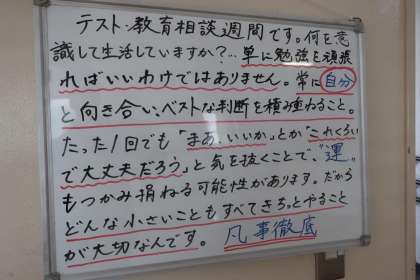 テスト・教育相談週間です。何を意
識して生活していますか？…単に勉強を頑張
ればいいわけではありません。常に自分
と向き合い、ベストな判断を積み重ねること。
たった1回でも「まあ、いいか」とか「これぐらい
で大丈夫だろう」と気を抜くことで、“運”
もつかみ損ねる可能性があります。だから
どんな小さいこともすべてきちっとやること
が大切なんです。凡事徹底